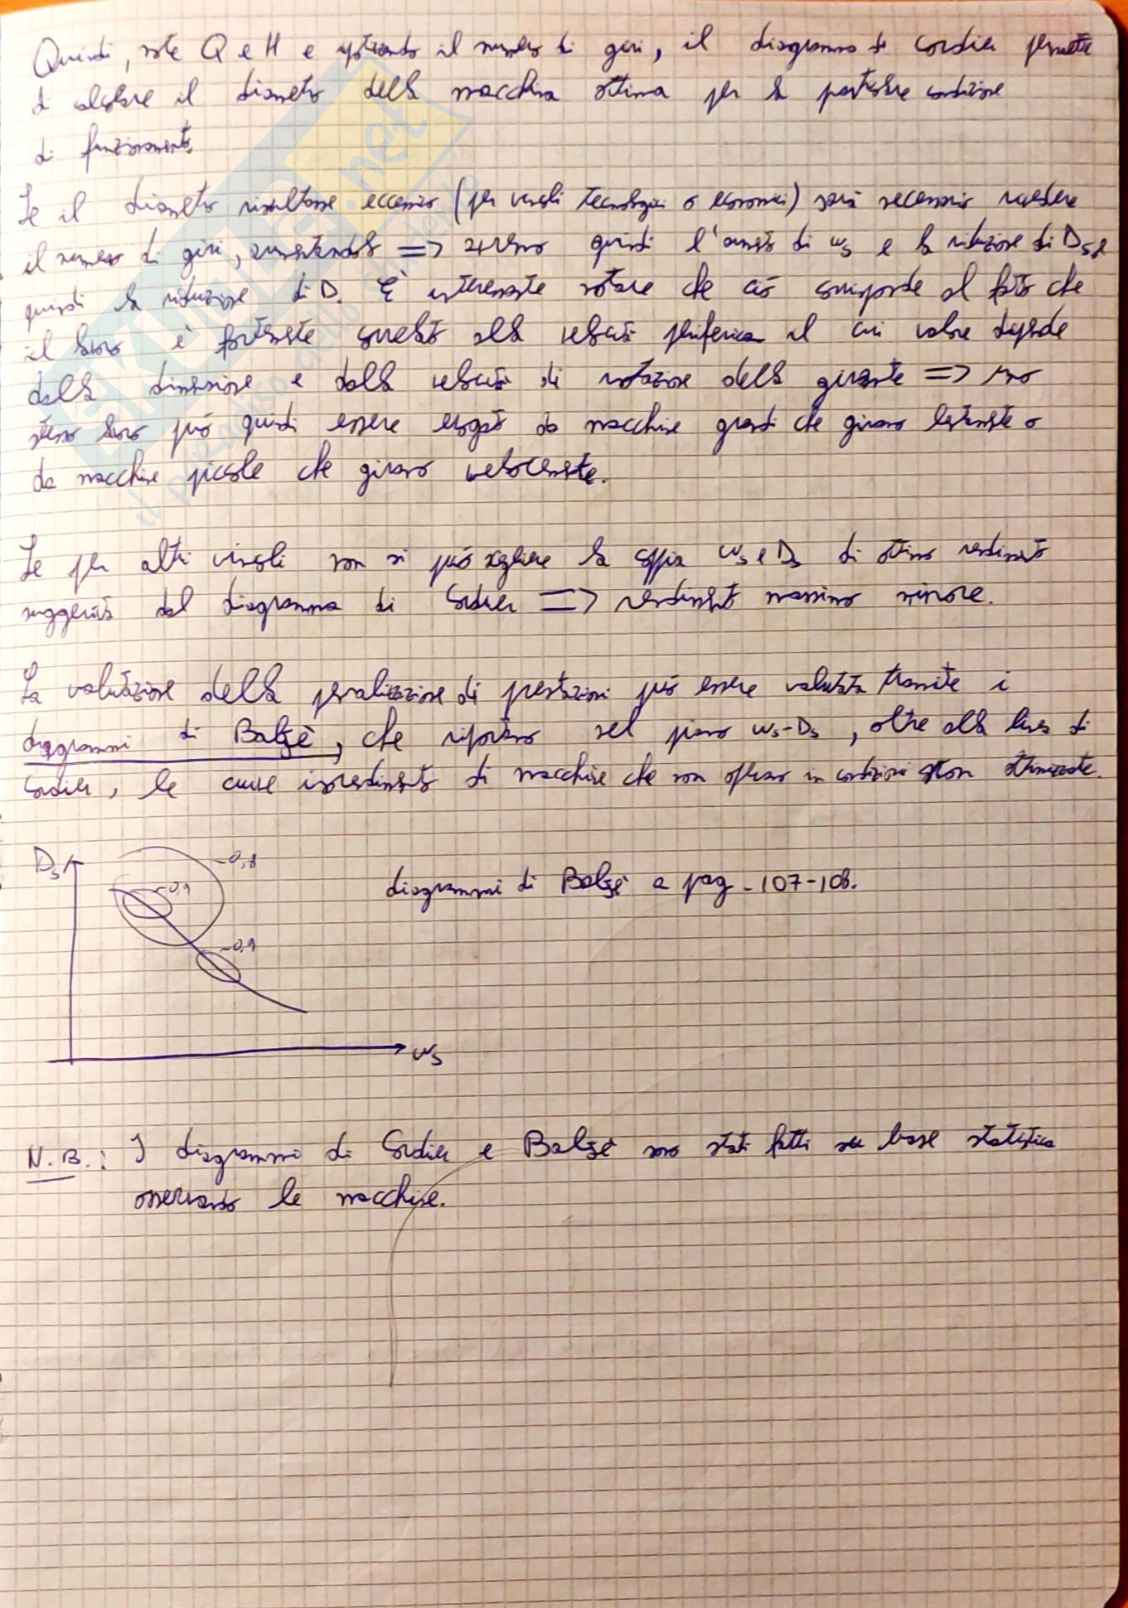 Quindi, note Q e H e ipotizzando il numero di giri, il diagramma di Cordier permette
di calcolare il diametro della macchina ottima per la particolare condizione
di funzionamento.
Se il diametro risultasse eccessivo (per vincoli tecnologici o economici) sarà necessario rivedere
il numero di giri, aumentandolo => avremo quindi l'aumento di ωs e la riduzione di Ds e
quindi la riduzione di D. È interessante notare che ciò corrisponde al fatto che
il lavoro è fortemente correlato alla velocità periferica il cui valore dipende
dalla dimensione e dalla velocità di rotazione della girante => uno
stesso lavoro può quindi essere erogato da macchine grandi che girano lentamente o
da macchine piccole che girano velocemente.
Se per altri vincoli non si può scegliere la coppia ωs e Ds di ottimo rendimento
suggerita dal diagramma di Cordier => rendimento massimo minore.
La valutazione della penalizzazione di prestazioni può essere valutata tramite i
diagrammi di Baljè, che riportano nel piano ωs-Ds, oltre alla linea di
Cordier, le curve isorendimento di macchine che non operano in condizioni non ottimizzate.
Ds
0,8
0,9
0,9
ωs
diagrammi di Baljè a pag. 107-108.
N.B.: I diagrammi di Cordier e Baljè sono stati fatti su base statistica
osservando le macchine.